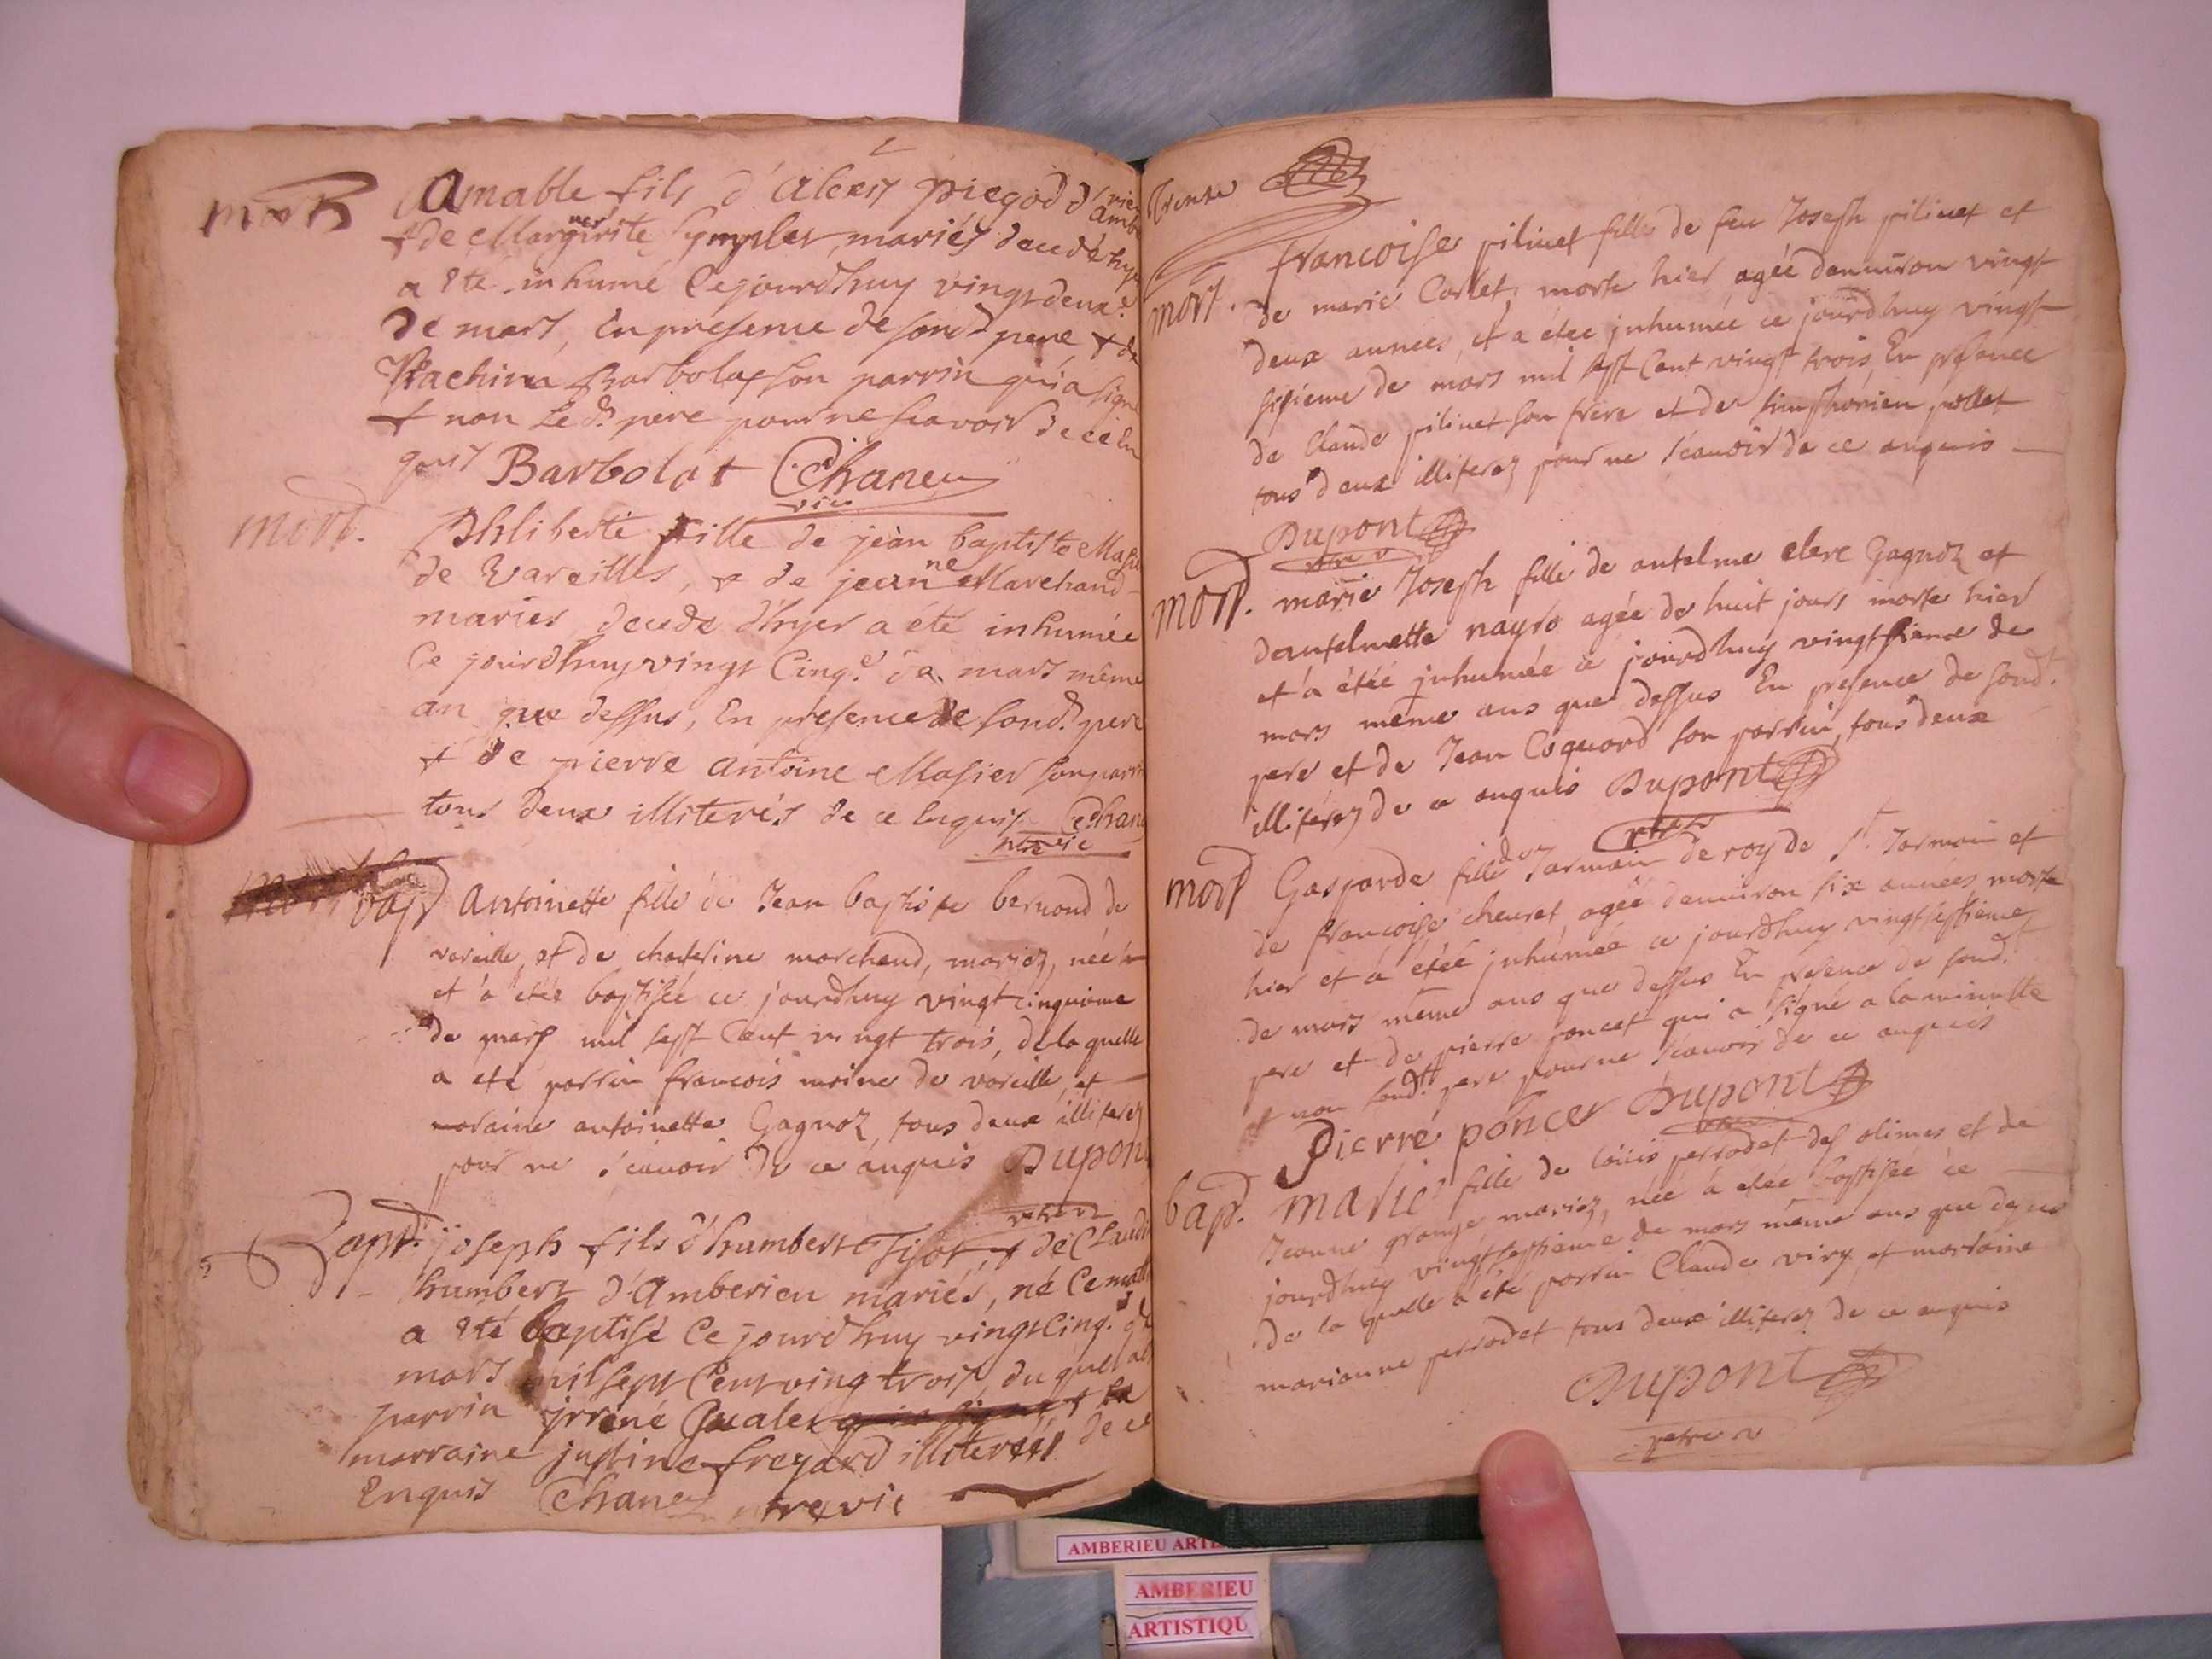 mort Amable fils d'Alexis piegod d'
& de Marguerite mariés decedé hyer
a été inhumé Cejourdhuy vingtdeux.e
De mars, En presence de sond. pere & de
Barbolat son parrin qui a signé
& non Led. pere pour ne scavoir de ce En
quis Barbolat Chanen
vic
mort. Phliberte fille de jean baptiste
de Vareilles, & de jeanne Marchand
mariés decedé d'hyer a été inhumée
Ce jourdhuy vingt Cinq.e de mars même
an que dessus, En presence de sond. pere
& de pierre antoine Masier son parrin
tous deux illiterés de ce Enquis Chane
ptre vic
bapt Antoinette fille de Jean baptiste bernond de
vareille, et de chaterine marchand, mariez, née
et a étée baptisée ce jourdhuy vingt cinquieme
de mars mil sept Cent vingt trois, de laquelle
a été parrin francois moine de vareille, et
maraine antoinette Gagnoz, tous deux illiterez
pour ne scauoir de ce anquis Dupont
ptre v
Bapt. joseph fils d'humbert Tisot, & de Claudine
humbert d'Amberieu mariés, né Ce matin
a été baptisé Ce jourdhuy vingt Cinq.e de
mars mil sept Cent ving trois, du quel a été
parrin jrriné & la
marraine justine fregard illiterés de ce
Enquis Chanen ptre vic
Trente
francoise pilinet fille de feu Joseph pilinet et
mort. de marie Carlet, morte hier agée denuiron vingt
deux années, et a étée jnhumée ce jourdhuy vingt
sixieme de mars mil sept Cent vingt trois En presence
de Claude pilinet son frere et de simphorien pollet
tous deux illiterez pour ne scauoir de ce anquis
Dupont
ptre v
mort. marie Joseph fille de antelme clerc Gagnoz et
dantelmette nayro agée de huit jours morte hier
et a étée jnhumée ce jourdhuy vingtsixieme de
mars même ans que dessus En presence de sond.t
pere et de Jean Coquard son parrin, tous deux
illiterez de ce anquis Dupont
ptre v
mort Gasparde fille de Jarmain deroy de St. Jarmain et
de francoise cheuret agée denuiron six années morte
hier et a étée jnhumée ce jourdhuy vingtseptieme
de mars même ans que dessus En presence de sond.t
pere et de pierre poncet qui a signé a la minutte
et non sond.t pere pour ne scauoir de ce anquis
Pierre poncet Dupont
ptre v
bapt. marie fille de loüis perrodet des alimes et de
Jeanne grange mariez, née a étée baptisée ce
jourdhuy vingtseptieme de mars même ans que dessus
de la quelle a été parrin Claude viry et marraine
marianne perrodet tous deux illiterez de ce anquis
Dupont
ptre v
AMBERIEU
AMBERIEU
ARTISTIQU